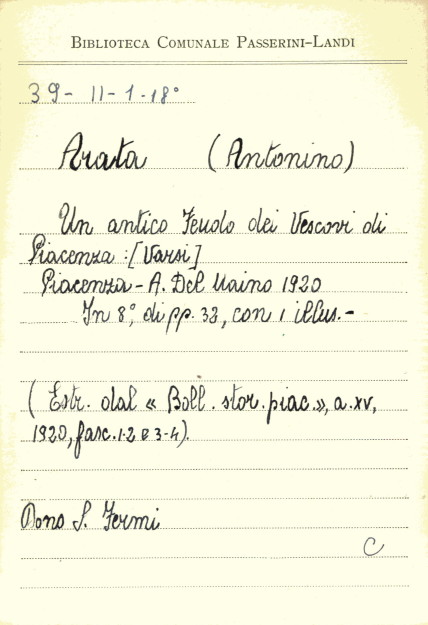 BIBLIOTECA COMUNALE PASSERINI-LANDI
39- II-1-18°
Arata (Antonino)
Un antico Feudo dei Vescovi di
Piacenza: [Varsi]
Piacenza - A. Del Maino 1920
In 8°, di pp. 33, con 1 illus.-
( Estr. dal « Boll. stor. piac.», a. XV,
1920, fasc. 1-2 e 3-4).
Dono S. Fermi
C